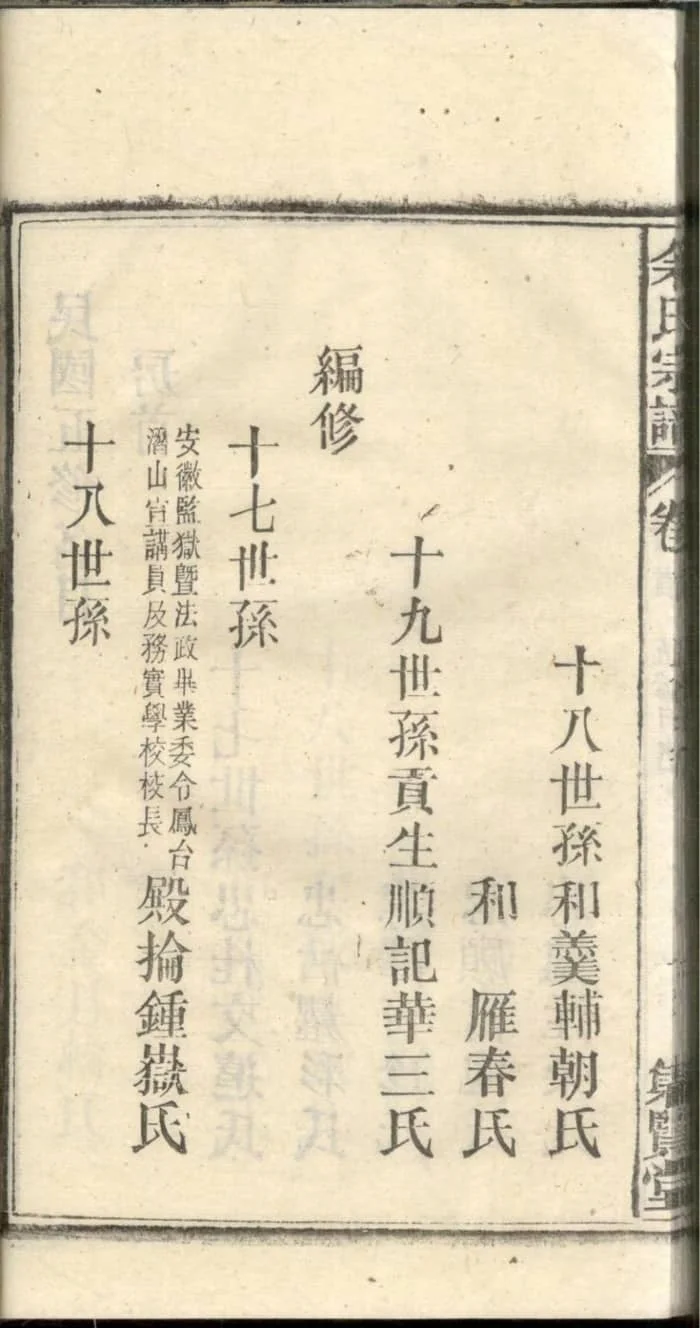 余氏宗譜 卷
集賢堂
十八世孫和羹輔朝氏
和 雁春氏
十九世孫貢生順記華三氏
編修
十七世孫
安徽監獄暨法政畢業委令鳳台
潛山官講員及務實學校校長
殿掄鍾嶽氏
十八世孫